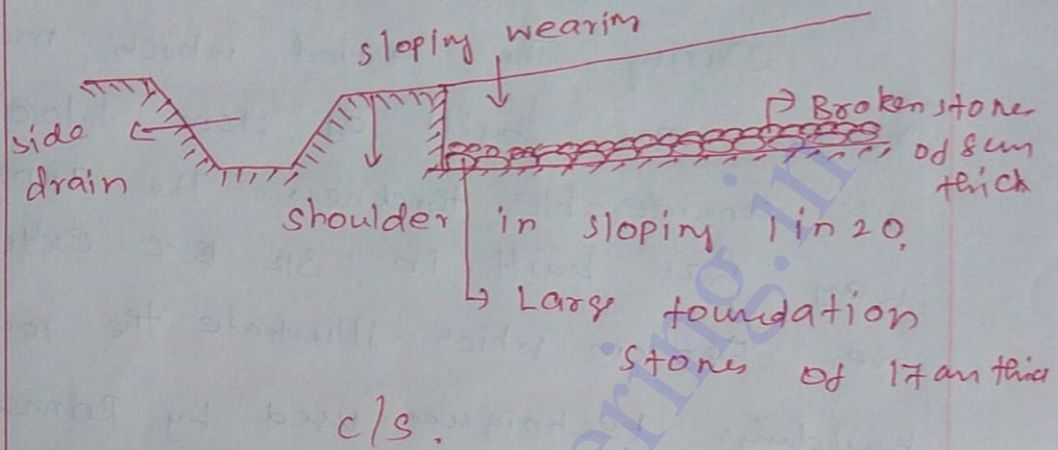 sloping wearing
side drain
Broken stones of 8cm thick
shoulder in sloping 1 in 20.
Large foundation stones of 17cm thick
c/s.
ering.in